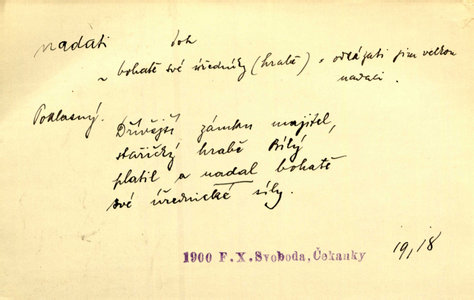 nadati dok
~ bohatě své úředníky (hrabě), odkázati jim velkou
nadaci.
Poklasný.
Dřívější zámku majitel,
stařičký hrabě Bílý
platil a nadal bohatě
své úřednické síly.
1900 F. X. Svoboda, Čekanky
19, 18